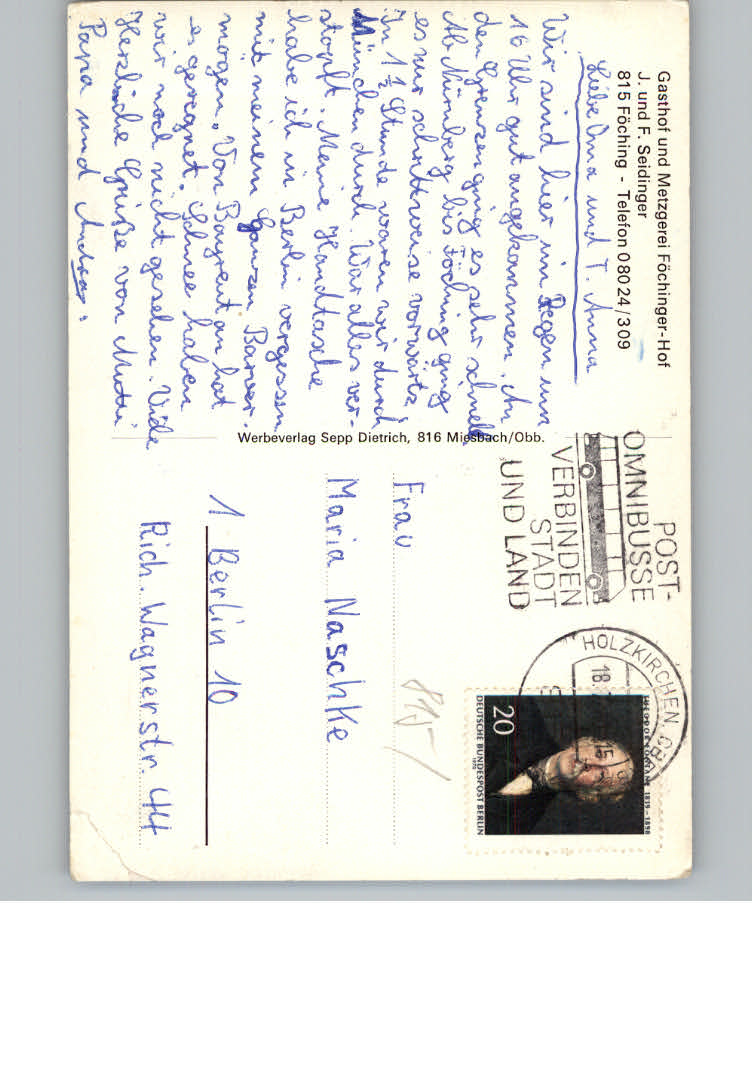 Gasthof und Metzgerei Föchinger-Hof
J. und F. Seidinger
815 Föching - Telefon 0 80 24 / 3 09
Liebe Oma und T. Anna
Wir sind hier im Regen um
16 Uhr gut angekommen. An
den Grenzen ging es sehr schnell
Ab Nürnberg bis Föching ging
es nur schrittweise vorwärts
In 1 1/2 Stunde waren wir durch
München durch. War alles ver-
stopft. Meine Handtasche
habe ich in Berlin vergessen
mit meinem ganzen Barver-
mögen. Von Bayreut an hat
es geregnet. Schnee haben
wir noch nicht gesehen. Viele
Herzliche Grüße von Mutti
Papa und Andreas.
Werbeverlag Sepp Dietrich, 816 Miesbach/Obb.
POST-
OMNIBUSSE
VERBINDEN
STADT
UND LAND
HOLZKIRCHEN
18.
15
THEODOR FONTANE 1819-1898
20
DEUTSCHE BUNDESPOST BERLIN
1970
Frau
Maria Naschke
1 Berlin 10
Rich. Wagnerstr. 44